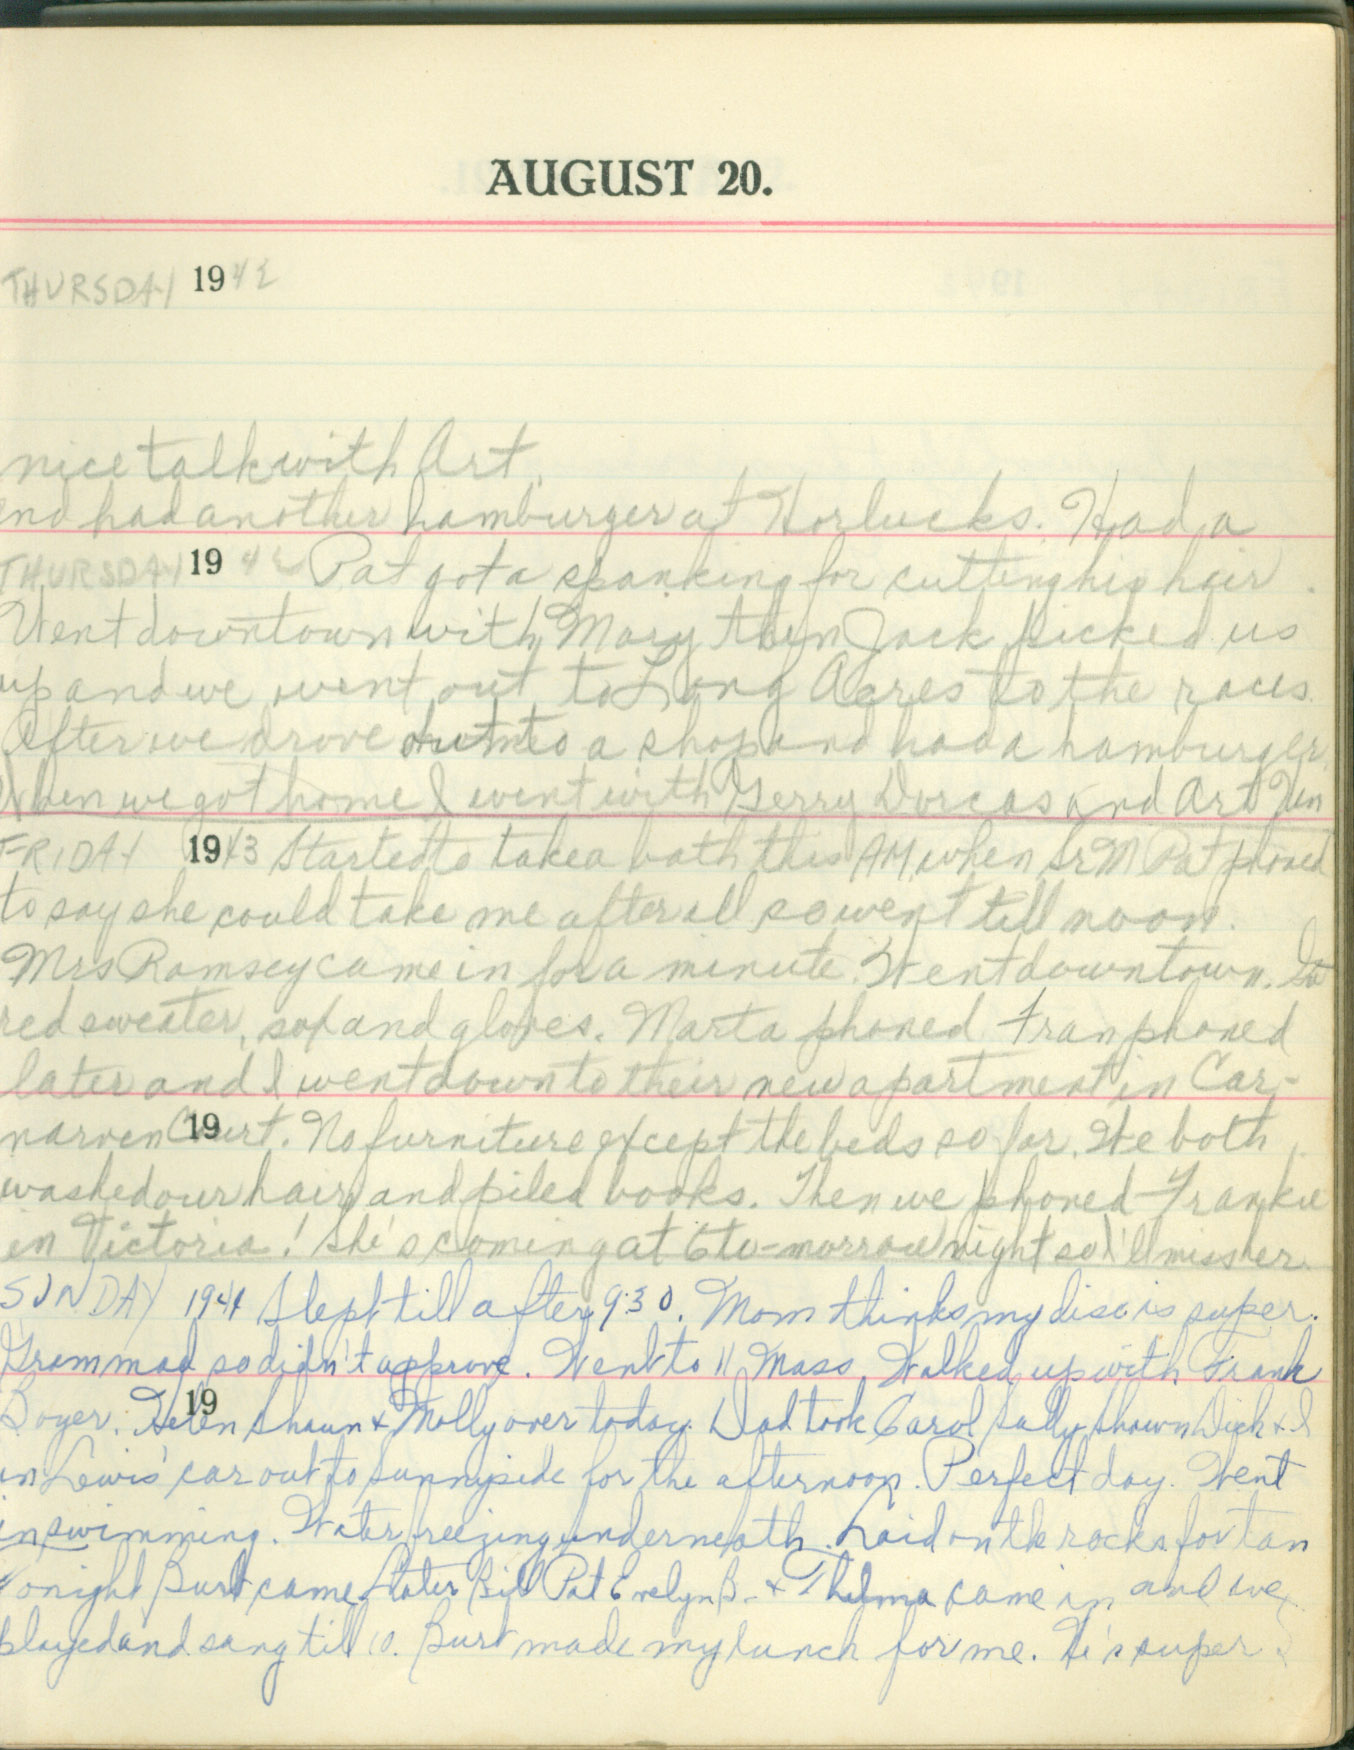 AUGUST 20.
THURSDAY 1942
nice talk with Art.
and had another hamburger at Horlucks. Had a
THURSDAY 1942 Pat got a spanking for cutting his hair.
Went downtown with Mary then Jack picked us
up and we went out to Long Acres to the races.
After we drove out to a shop and had a hamburger.
When we got home I went with Gerry Dorcas and Art
FRIDAY 1943 Started to take a bath this AM when Sr M Pat phoned
to say she could take me after all so went till noon.
Mrs Ramsey came in for a minute. Went downtown. Got
red sweater, sox and gloves. Marta phoned Fran phoned
later and I went down to their new apartment in Car-
narven Court. No furniture except the beds so far. We both
19
washed our hair and piled books. Then we phoned Frankie
in Victoria! She's coming at 6 to-morrow night so I'll miss her.
SUNDAY 1944 Slept till after 9:30. Mom thinks my disc is super.
Gram mad so didn't approve. Went to 11 Mass. Walked up with Frank
Boyer. Helen Shaun & Molly over today. Dad took Carol Sally Shawn Dick & I
19
in Lewis' car out to Sunnyside for the afternoon. Perfect day. Went
in swimming. Water freezing underneath. Laid on the rocks for tan
Tonight Burt came. Later Bill Pat Evelyn B. & Thelma came in and we
played and sang till 10. Burt made my lunch for me. He's super